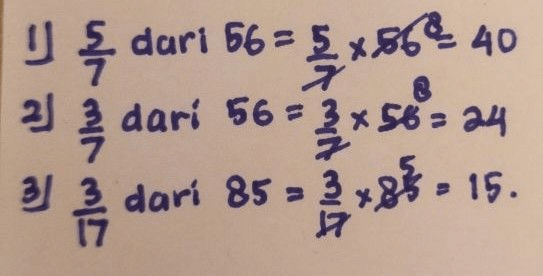 1) 5/7 dari 56 = 5/7 × 56 8 = 40
2) 3/7 dari 56 = 3/7 × 56 8 = 24
3) 3/17 dari 85 = 3/17 × 85 5 = 15.